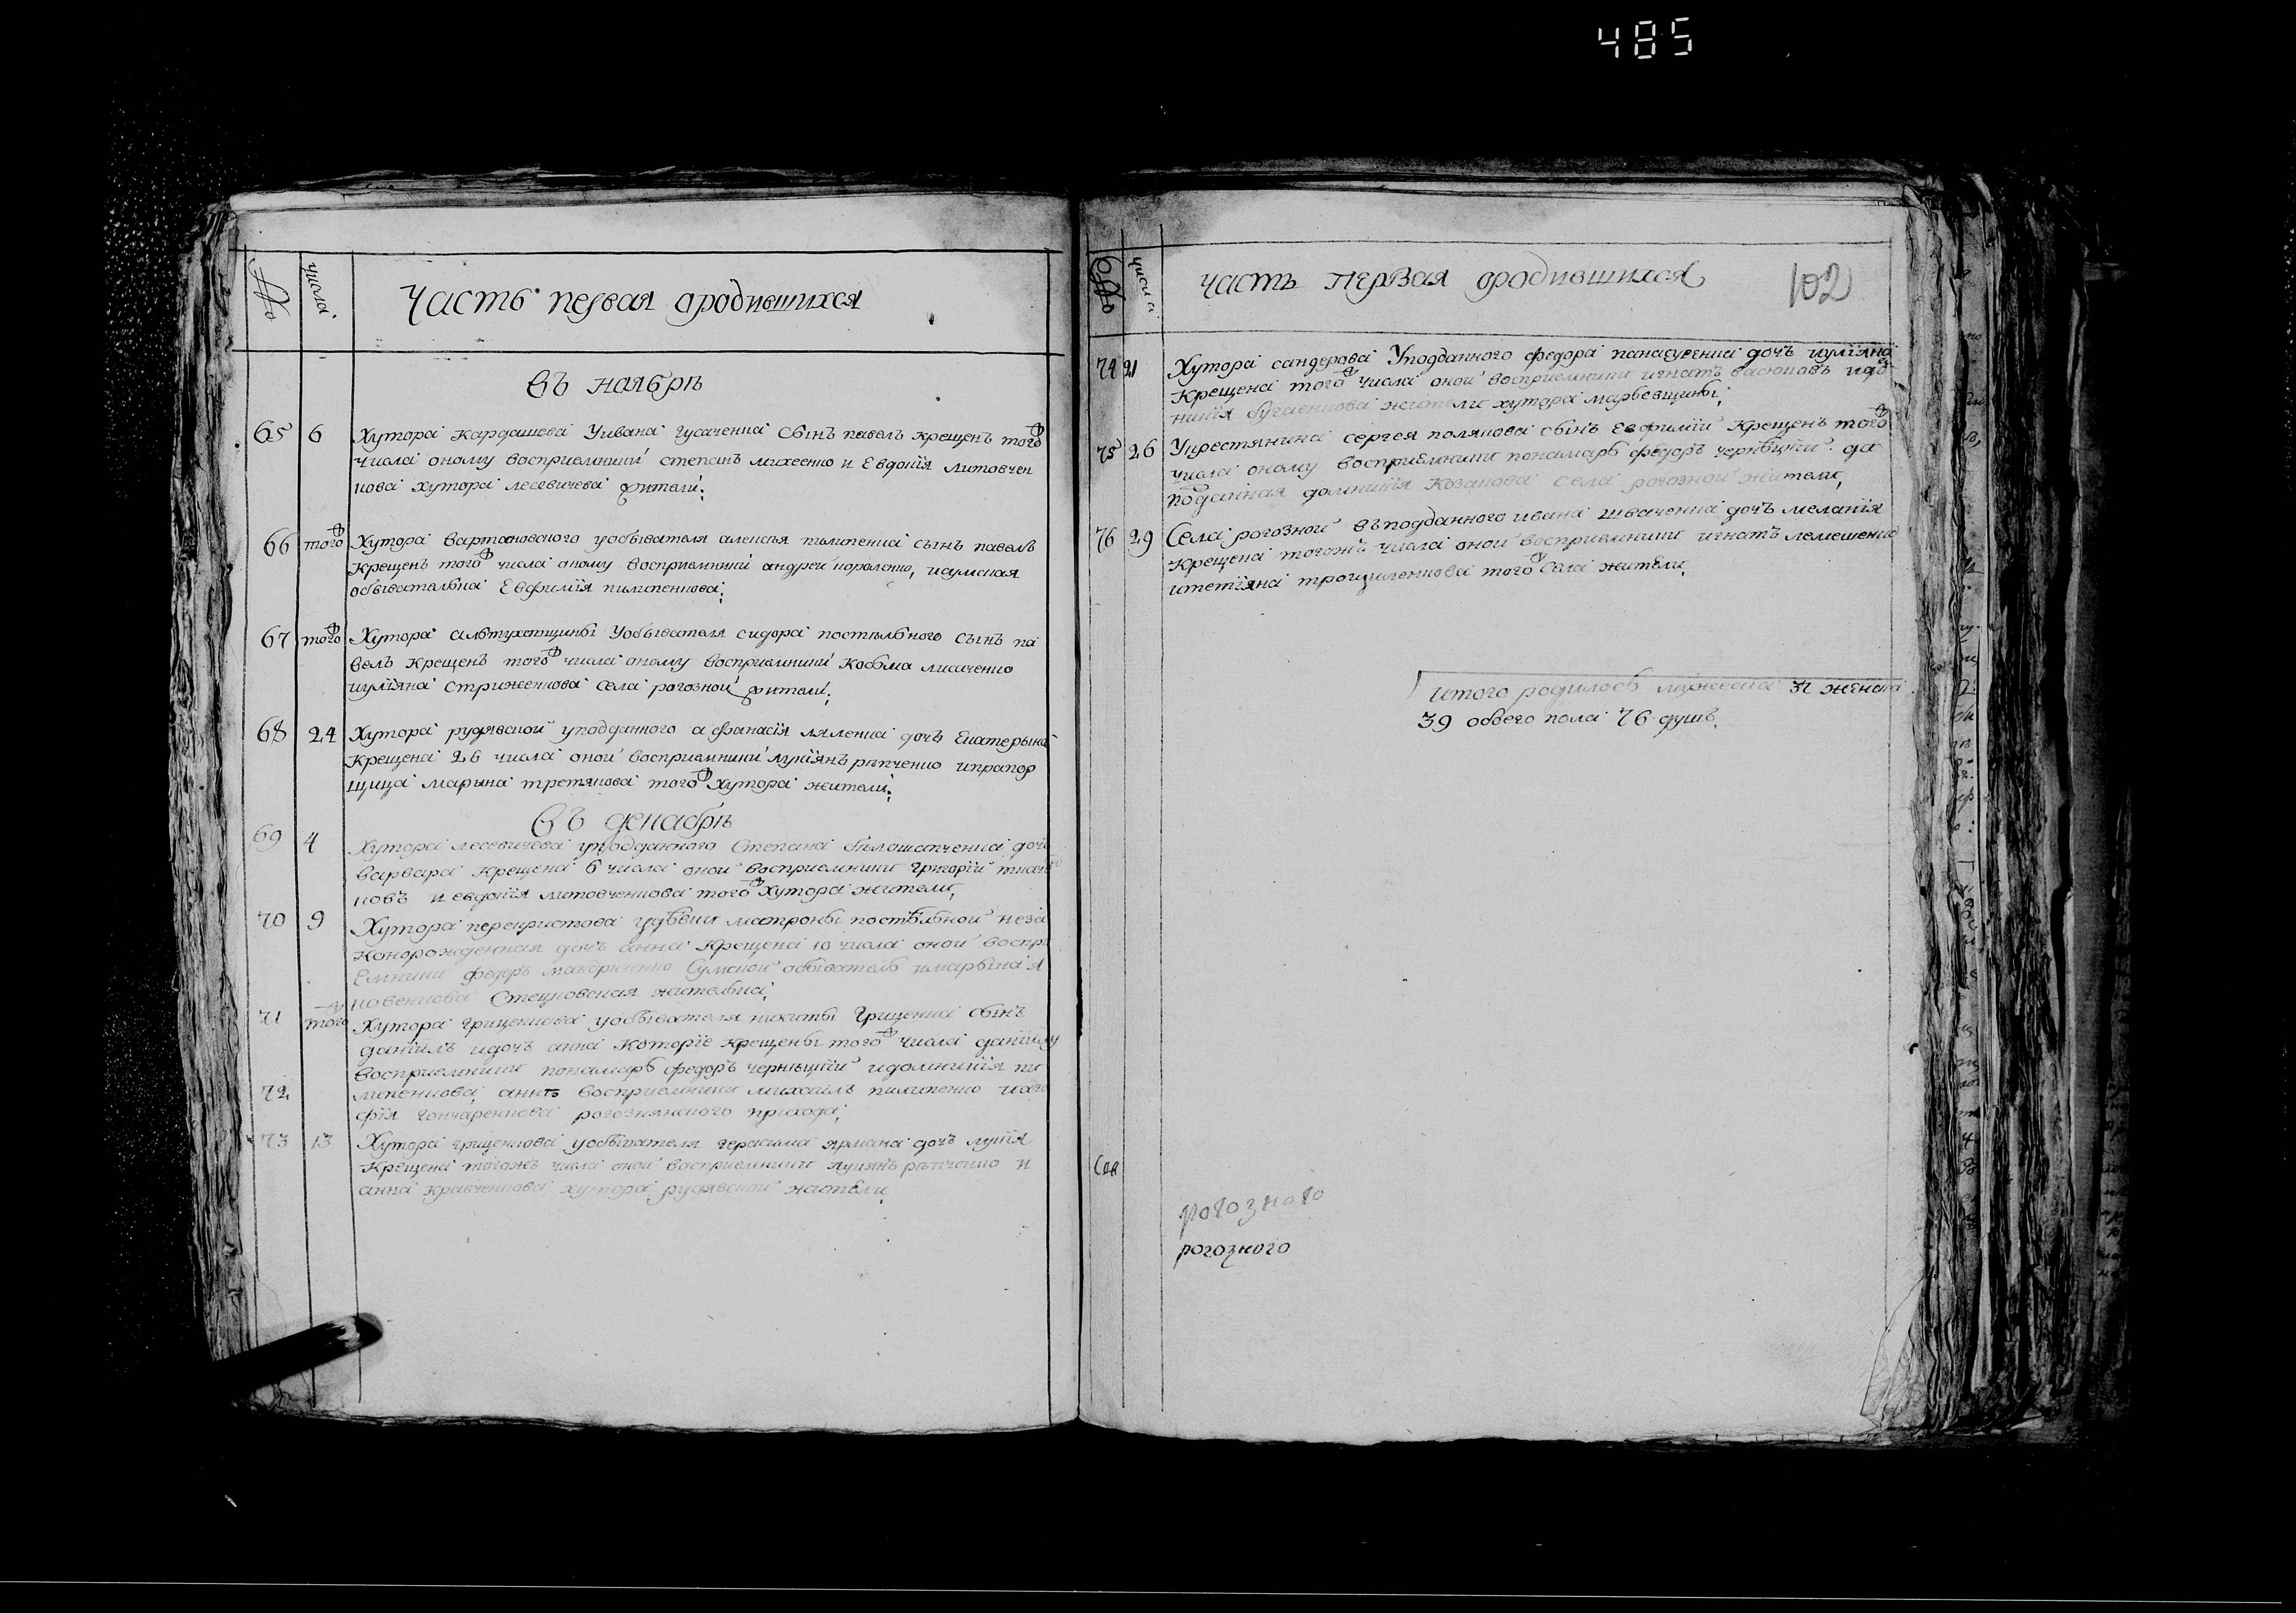 485
№
числа
Часть первая ородившихся
въ ноябрѣ
65 6 Хутора Кардашева Уивана гусаченка сынъ павелъ крещенъ тогож
числа оному восприемники степанъ михеенко и Евдокїя литовчен
кова хутора лесевичева жители;
66 тогож Хутора Вартановского уобывателя алексѣя пилипенка сынъ павелъ
крещенъ тогож числа оному восприемники андрей короленко, исумская
обывателька Евфимїя пилипенкова;
67 тогож Хутора Уобывателя сидора постѣльного сынъ па
велъ крещенъ тогож числа оному восприемники Козма лисаченко
иулїяна стриженкова села рогозной жители;
68 24 Хутора рудявской уподданного афанасїя ляленка дочь Екатерына
крещена 26 числа оной восприемники лукїянъ рѣпченко ипрапор
щица марына третякова тогож хутора жители;
въ декабрѣ
69 4 Хутора лесевичева уподданного Степана бѣлошапченка дочь
варвара крещена 6 числа оной восприемники григорїй
ковъ и евдокїя литовченкова тогож хутора жители;
70 9 Хутора перекристова удѣвки матроны постѣльной неза
конорожденная дочь анна крещена 10 числа оной воспрі
емники федоръ мандриченко Сумской обыватель имарына я
ковенкова Стецковская жителька;
71 тогож Хутора гриценкова уобывателя никиты Гриценка сынъ
данїилъ идочь анна которїе крещены тогож числа данїилу
восприемники понамарь федоръ чернѣцкїй идомникїя пи
72 липенкова; аннѣ восприемники михаилъ пилипенко иага
фїя гончаренкова рогознянского прихода;
73 13 Хутора гриценкова уобывателя герасима ярмака дочь лукїя
крещена тогожъ числа оной восприемники лукянъ рѣпченко и
анна кравченкова хутора рудявской жители
№
числа
часть первая ородившихся
102
74 21 Хутора сандерова Уподданного федора панасенка дочь иулїяна
крещена тогож числа оной восприемники игнатъ васюковъ
бугаенкова жители хутора марьевщины;
75 26 Укрестянина сергея полякова сынъ Евфимїй крещенъ тогож
числа оному восприемники понамарь федоръ чернѣцкїй да
подданная домникїя Козакова села рогозной жители,
76 29 Села рогозной въподданного ивана шваченка дочь меланїя
крещена тогожъ числа оной восприемники игнатъ лемешенко
итетїяна троцкиленкова тогож села жители,
итого родилось мужеска 37 женска
39 обоего пола 76 душъ
рогозного
рогозного